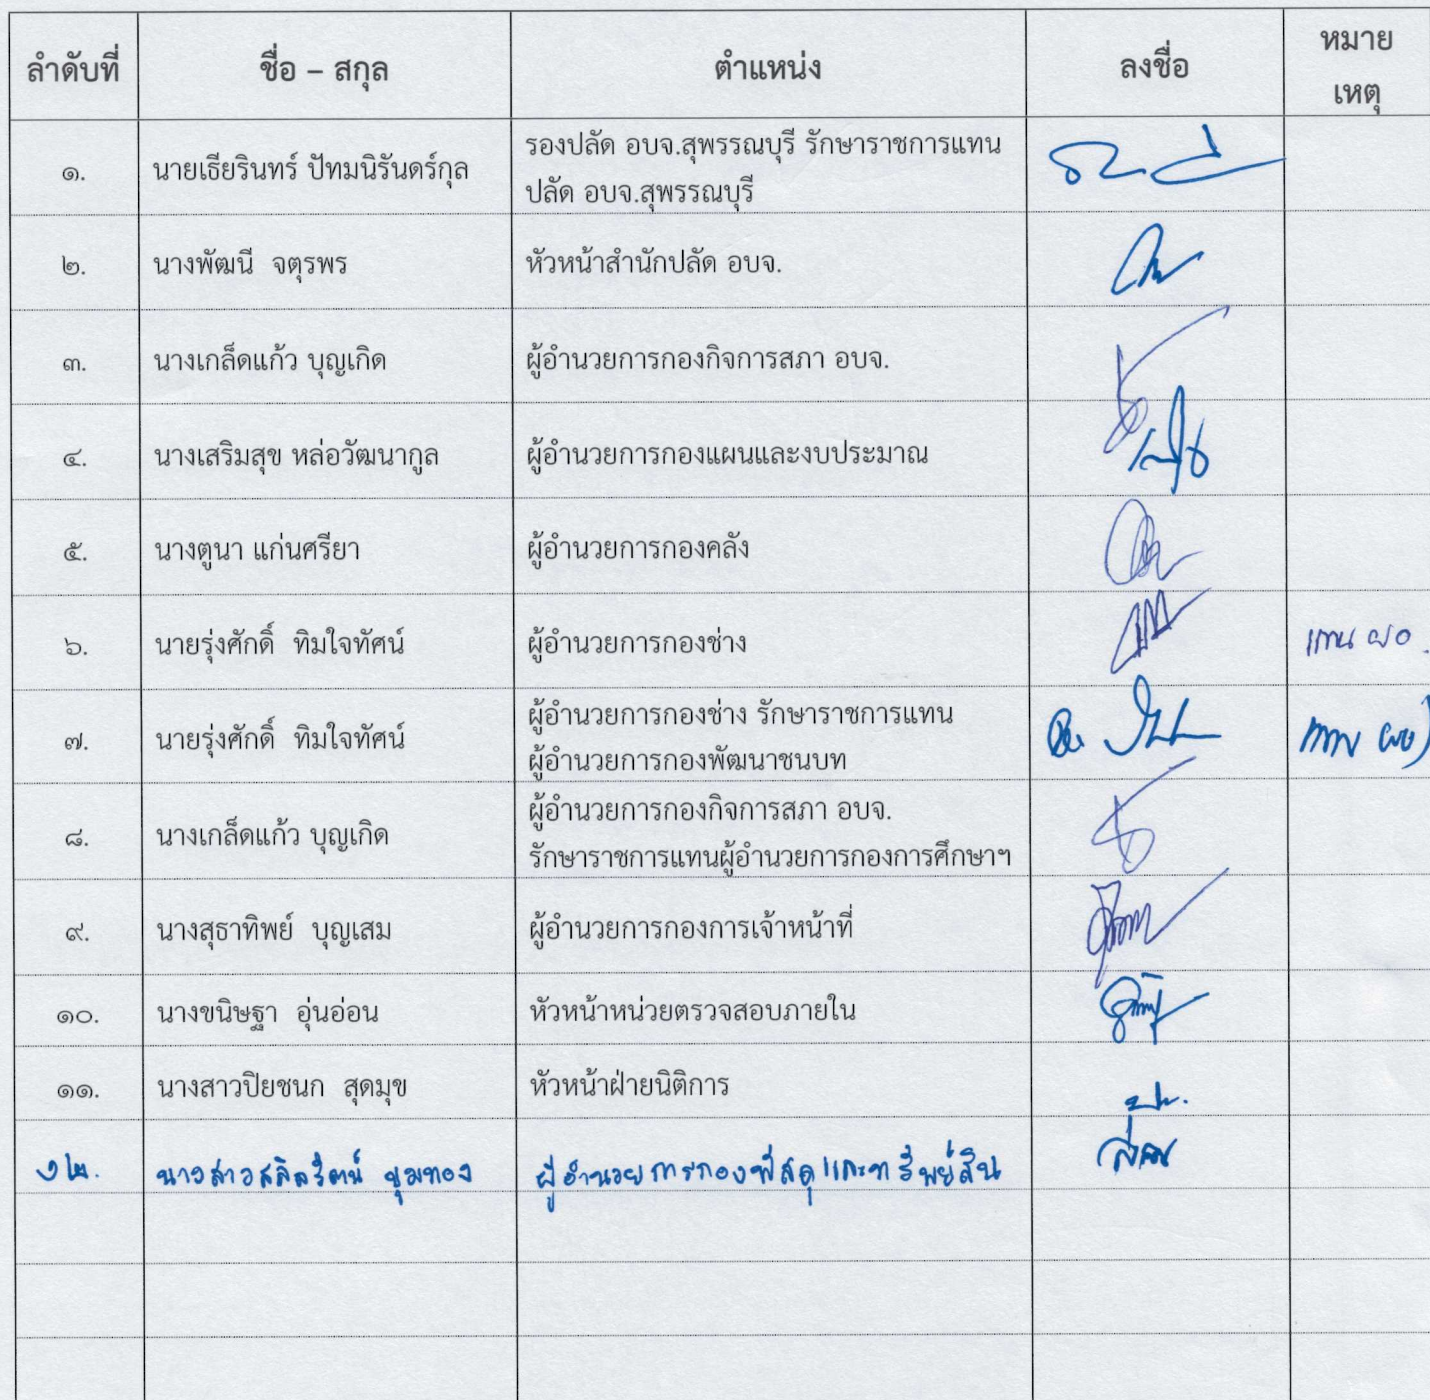 ลำดับที่ ชื่อ – สกุล ตำแหน่ง ลงชื่อ หมาย
เหตุ
๑. นายเธียรินทร์ ปัทมนิรันดร์กุล รองปลัด อบจ.สุพรรณบุรี รักษาราชการแทน
ปลัด อบจ.สุพรรณบุรี
๒. นางพัฒนี จตุรพร หัวหน้าสำนักปลัด อบจ.
๓. นางเกล็ดแก้ว บุญเกิด ผู้อำนวยการกองกิจการสภา อบจ.
๔. นางเสริมสุข หล่อวัฒนากูล ผู้อำนวยการกองแผนและงบประมาณ
๕. นางตูนา แก่นศรียา ผู้อำนวยการกองคลัง
๖. นายรุ่งศักดิ์ ทิมใจทัศน์ ผู้อำนวยการกองช่าง แทน ผอ.
๗. นายรุ่งศักดิ์ ทิมใจทัศน์ ผู้อำนวยการกองช่าง รักษาราชการแทน แทน ผอ
ผู้อำนวยการกองพัฒนาชนบท
๘. นางเกล็ดแก้ว บุญเกิด ผู้อำนวยการกองกิจการสภา อบจ.
รักษาราชการแทนผู้อำนวยการกองการศึกษาฯ
๙. นางสุธาทิพย์ บุญเสม ผู้อำนวยการกองการเจ้าหน้าที่
๑๐. นางขนิษฐา อุ่นอ่อน หัวหน้าหน่วยตรวจสอบภายใน
๑๑. นางสาวปิยชนก สุดมุข หัวหน้าฝ่ายนิติการ
๑๒. นางสาวสลิลรัตน์ ชุมทอง ผู้อำนวยการกองพัสดุและทรัพย์สิน